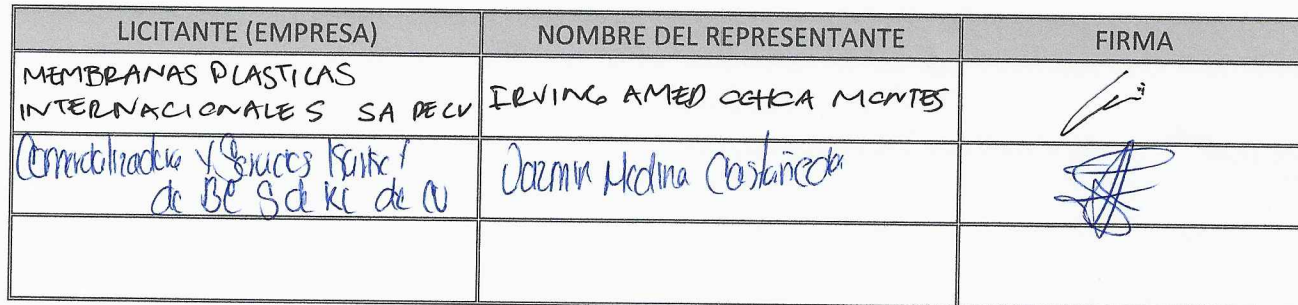 LICITANTE (EMPRESA) NOMBRE DEL REPRESENTANTE FIRMA
MEMBRANAS PLASTICAS
INTERNACIONALES SA DE CV IRVING AMED OCHOA MONTES
Comercializadora y Servicios
de BC S de RL de CV Jazmin Medina Castañeda